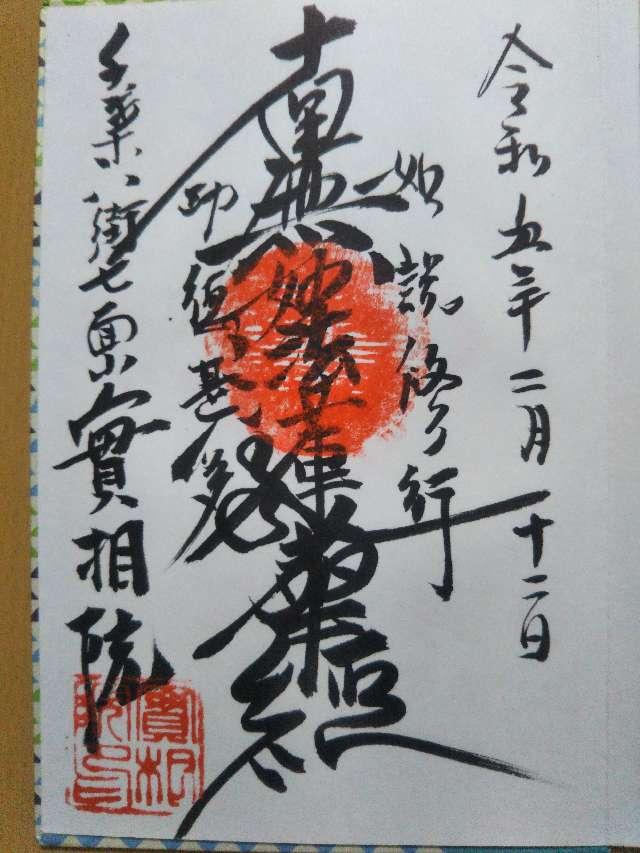 令和五年二月十二日
如説修行
南無妙法蓮華経
功徳甚多
千葉八街 實相院